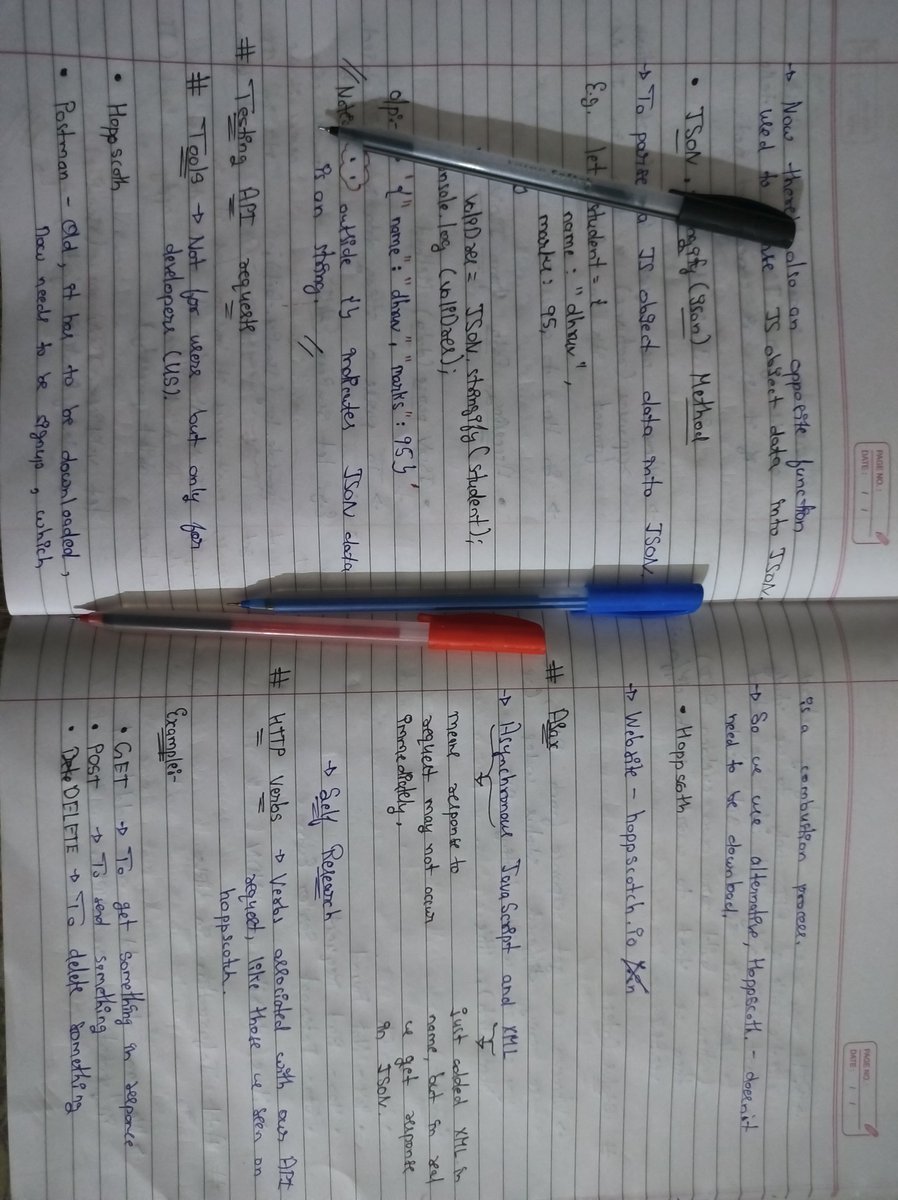 PAGE NO.:
DATE: / /
→ Now there also an opposite function
used to JS object data into JSON.
• JSON. (json) Method
→ To parse a JS object data into JSON.
E.g. let student = {
name : "dhruv",
marks : 95,
valJDres = JSON.stringify(student);
console.log (valJDres);
'{" name": "dhruv", "marks": 95}'
// Note outside {} indicates JSON data
is an string. //
# Testing API requests
# Tools → Not for users but only for
developers (US).
• Hoppscoth
• Postman - Old, it has to be downloaded,
now needs to be signup, which
PAGE NO.:
DATE: / /
is a combustion process.
→ So we use alternative, Hoppscoth. - doesn't
need to be download.
• Hoppscoth
→ Website - hoppscotch.io
# Ajax
→ Asynchronous JavaScript and XML
means response to
request may not occur
immediately.
just added XML in
name, but in real
we get response
in JSON.
→ Self Research
# HTTP Verbs → Verbs associated with our API
request, like those we seen on
hoppscotch.
Example:-
• GET → To get something in responce
• POST → To send something
• DELETE → To delete something